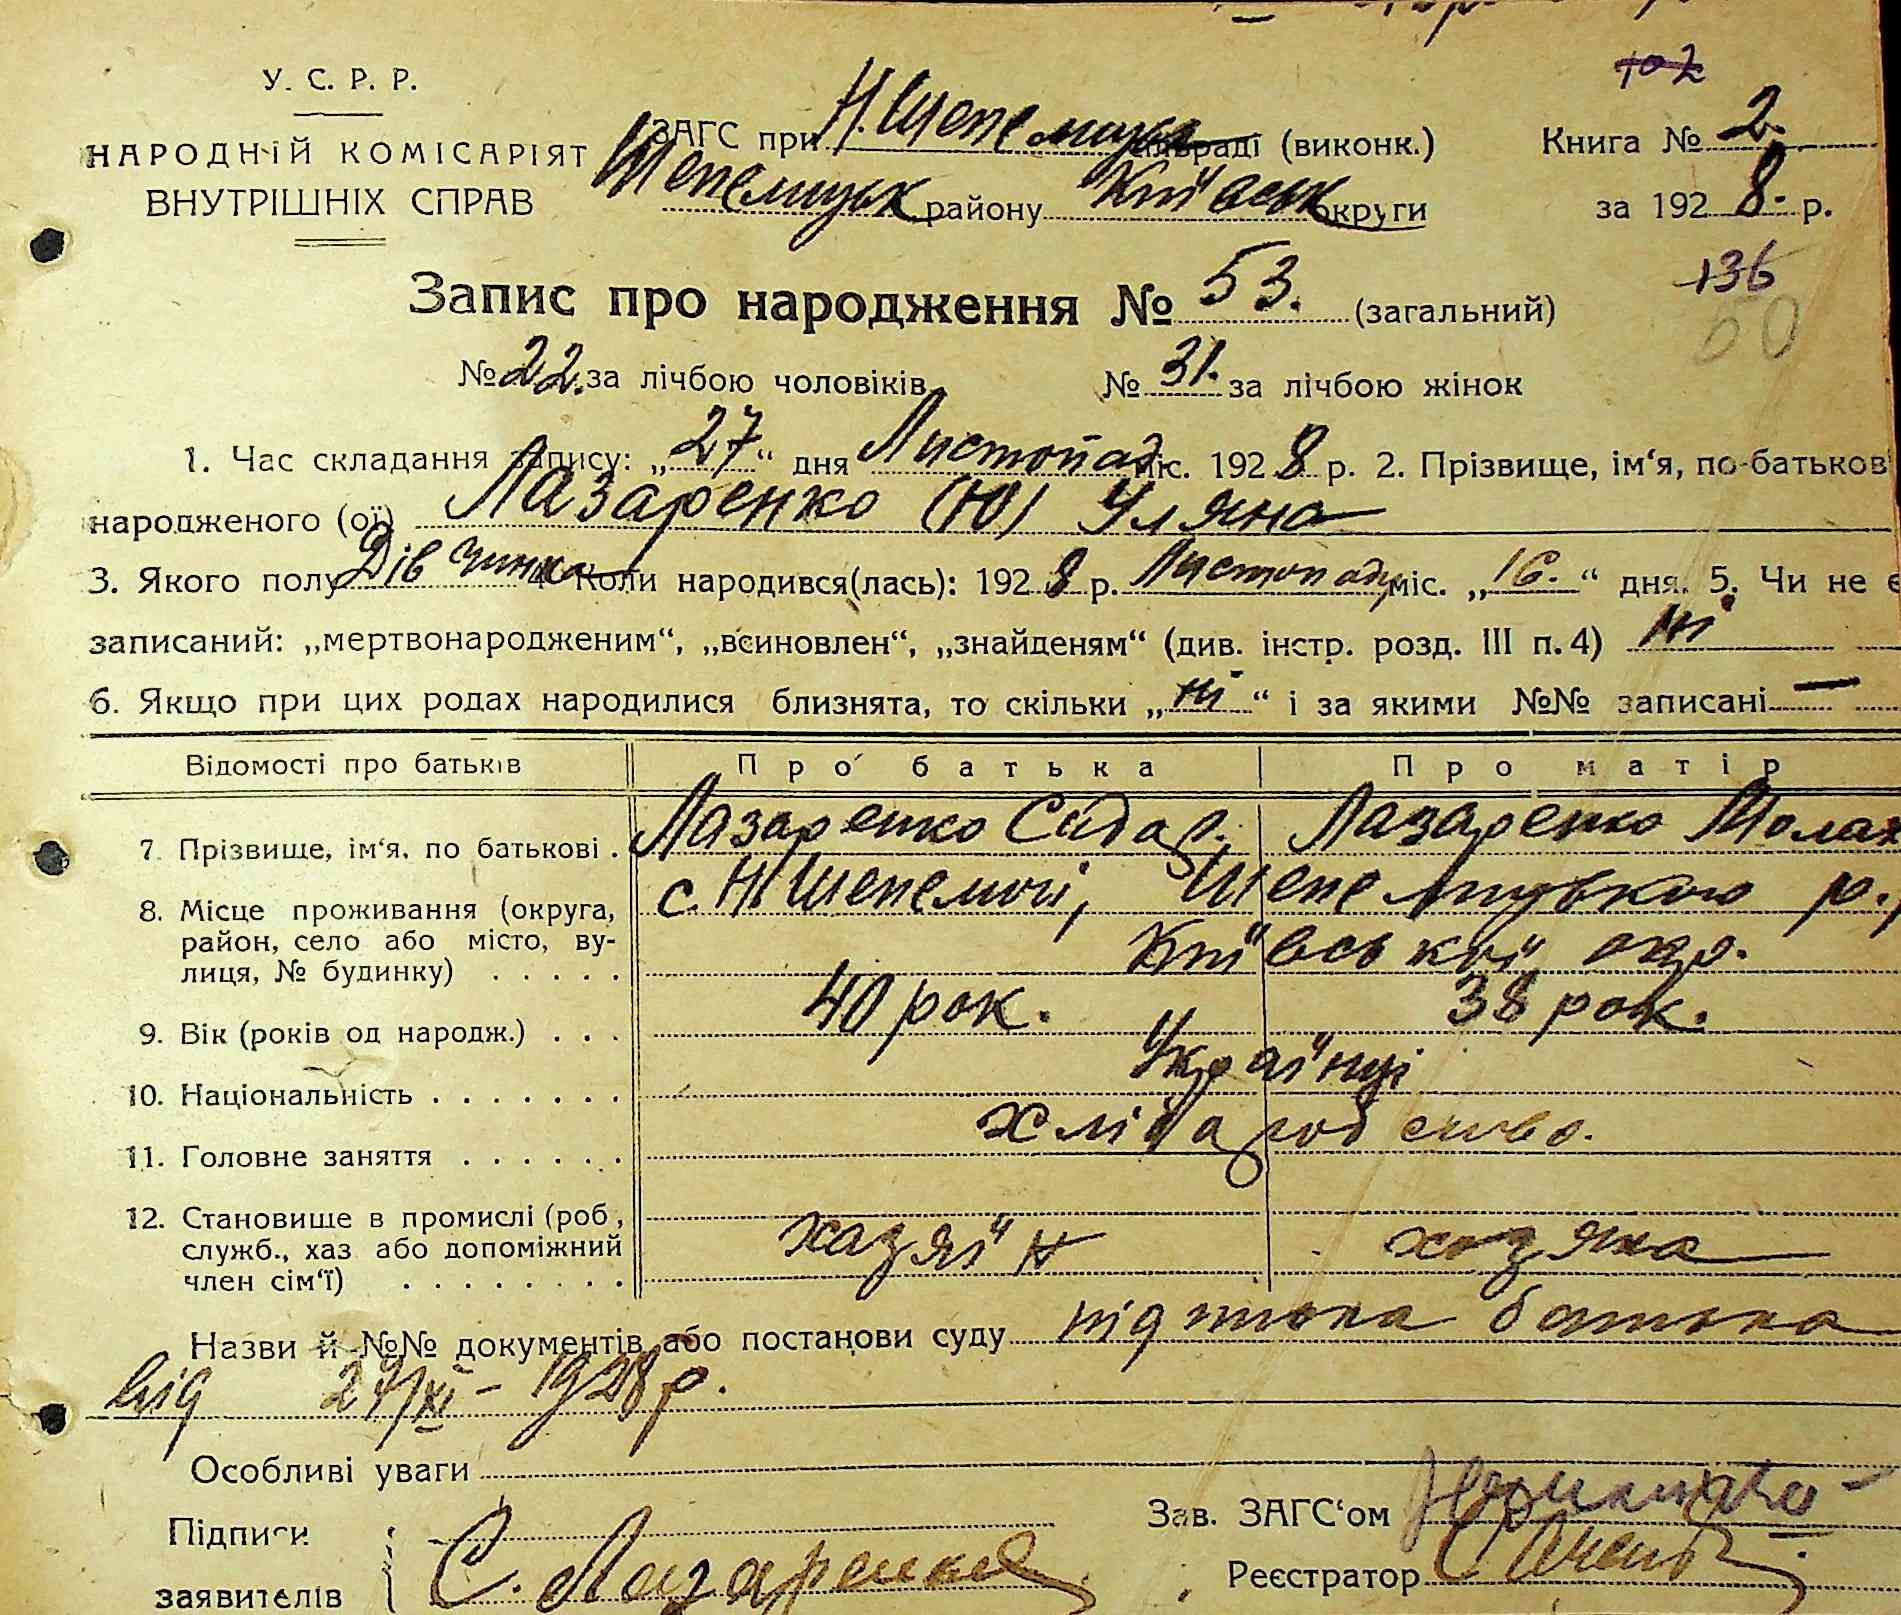 102
У. С. Р. Р.
НАРОДНІЙ КОМІСАРІЯТ
ВНУТРІШНІХ СПРАВ
ЗАГС при Н. Шепелицьк сільраді (виконк.)
Шепелицьк району Київськ округи
Книга № 2.
за 1928. р.
136
50
Запис про народження № 53. (загальний)
№ 22. за лічбою чоловіків № 31. за лічбою жінок
1. Час складання запису: „27“ дня Листопад міс. 1928 р. 2. Прізвище, ім‘я, по-батьков
народженого (ої) Лазаренко (Ю) Уляна
3. Якого полу Дівчинка 4. Коли народився(лась): 1928 р. Листопаду міс. „16.“ дня. 5. Чи не є
записаний: „мертвонародженим“, „всиновлен“, „знайденям“ (див. інстр. розд. III п. 4) Ні
6. Якщо при цих родах народилися близнята, то скільки „ні“ і за якими №№ записані —
Відомості про батьків Про батька Про матір
7. Прізвище, ім‘я, по батькові . Лазаренко Сидор. Лазаренко Молан
8. Місце проживання (округа, с. Н. Шепеличі, Шепелицького р.,
район, село або місто, ву-
лиця, № будинку) . . . . . Київської окр.
9. Вік (років од народж.) . . . 40 рок. 38 рок.
10. Національність . . . . . . . Українці
11. Головне заняття . . . . . . хлібаробство.
12. Становище в промислі (роб.,
служб., хаз або допоміжний хазяїн хазяйка
член сім‘ї) . . . . . . . .
Назви й №№ документів або постанови суду підписка батька
від 27/XI – 1928 р.
Особливі уваги
Зав. ЗАГС‘ом
Підписи
заявителів С. Лазаренко
Реєстратор